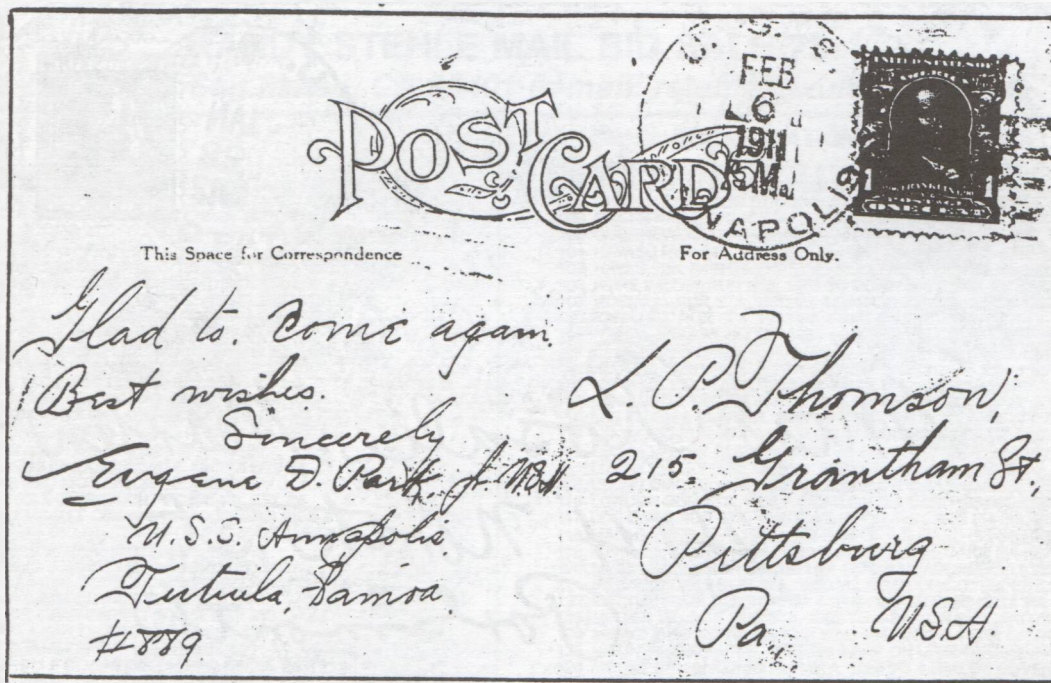 POST CARD
U.S.S.
FEB
6
1911
M.
NAPOLIS
This Space for Correspondence
For Address Only.
Glad to. Come again
Best wishes.
Sincerely
Eugene D. Park.
U.S.S. Annapolis.
Tutuila, Samoa.
#889
L P. Thomson,
215. Grantham St,
Pittsburg
Pa. U.S.A.